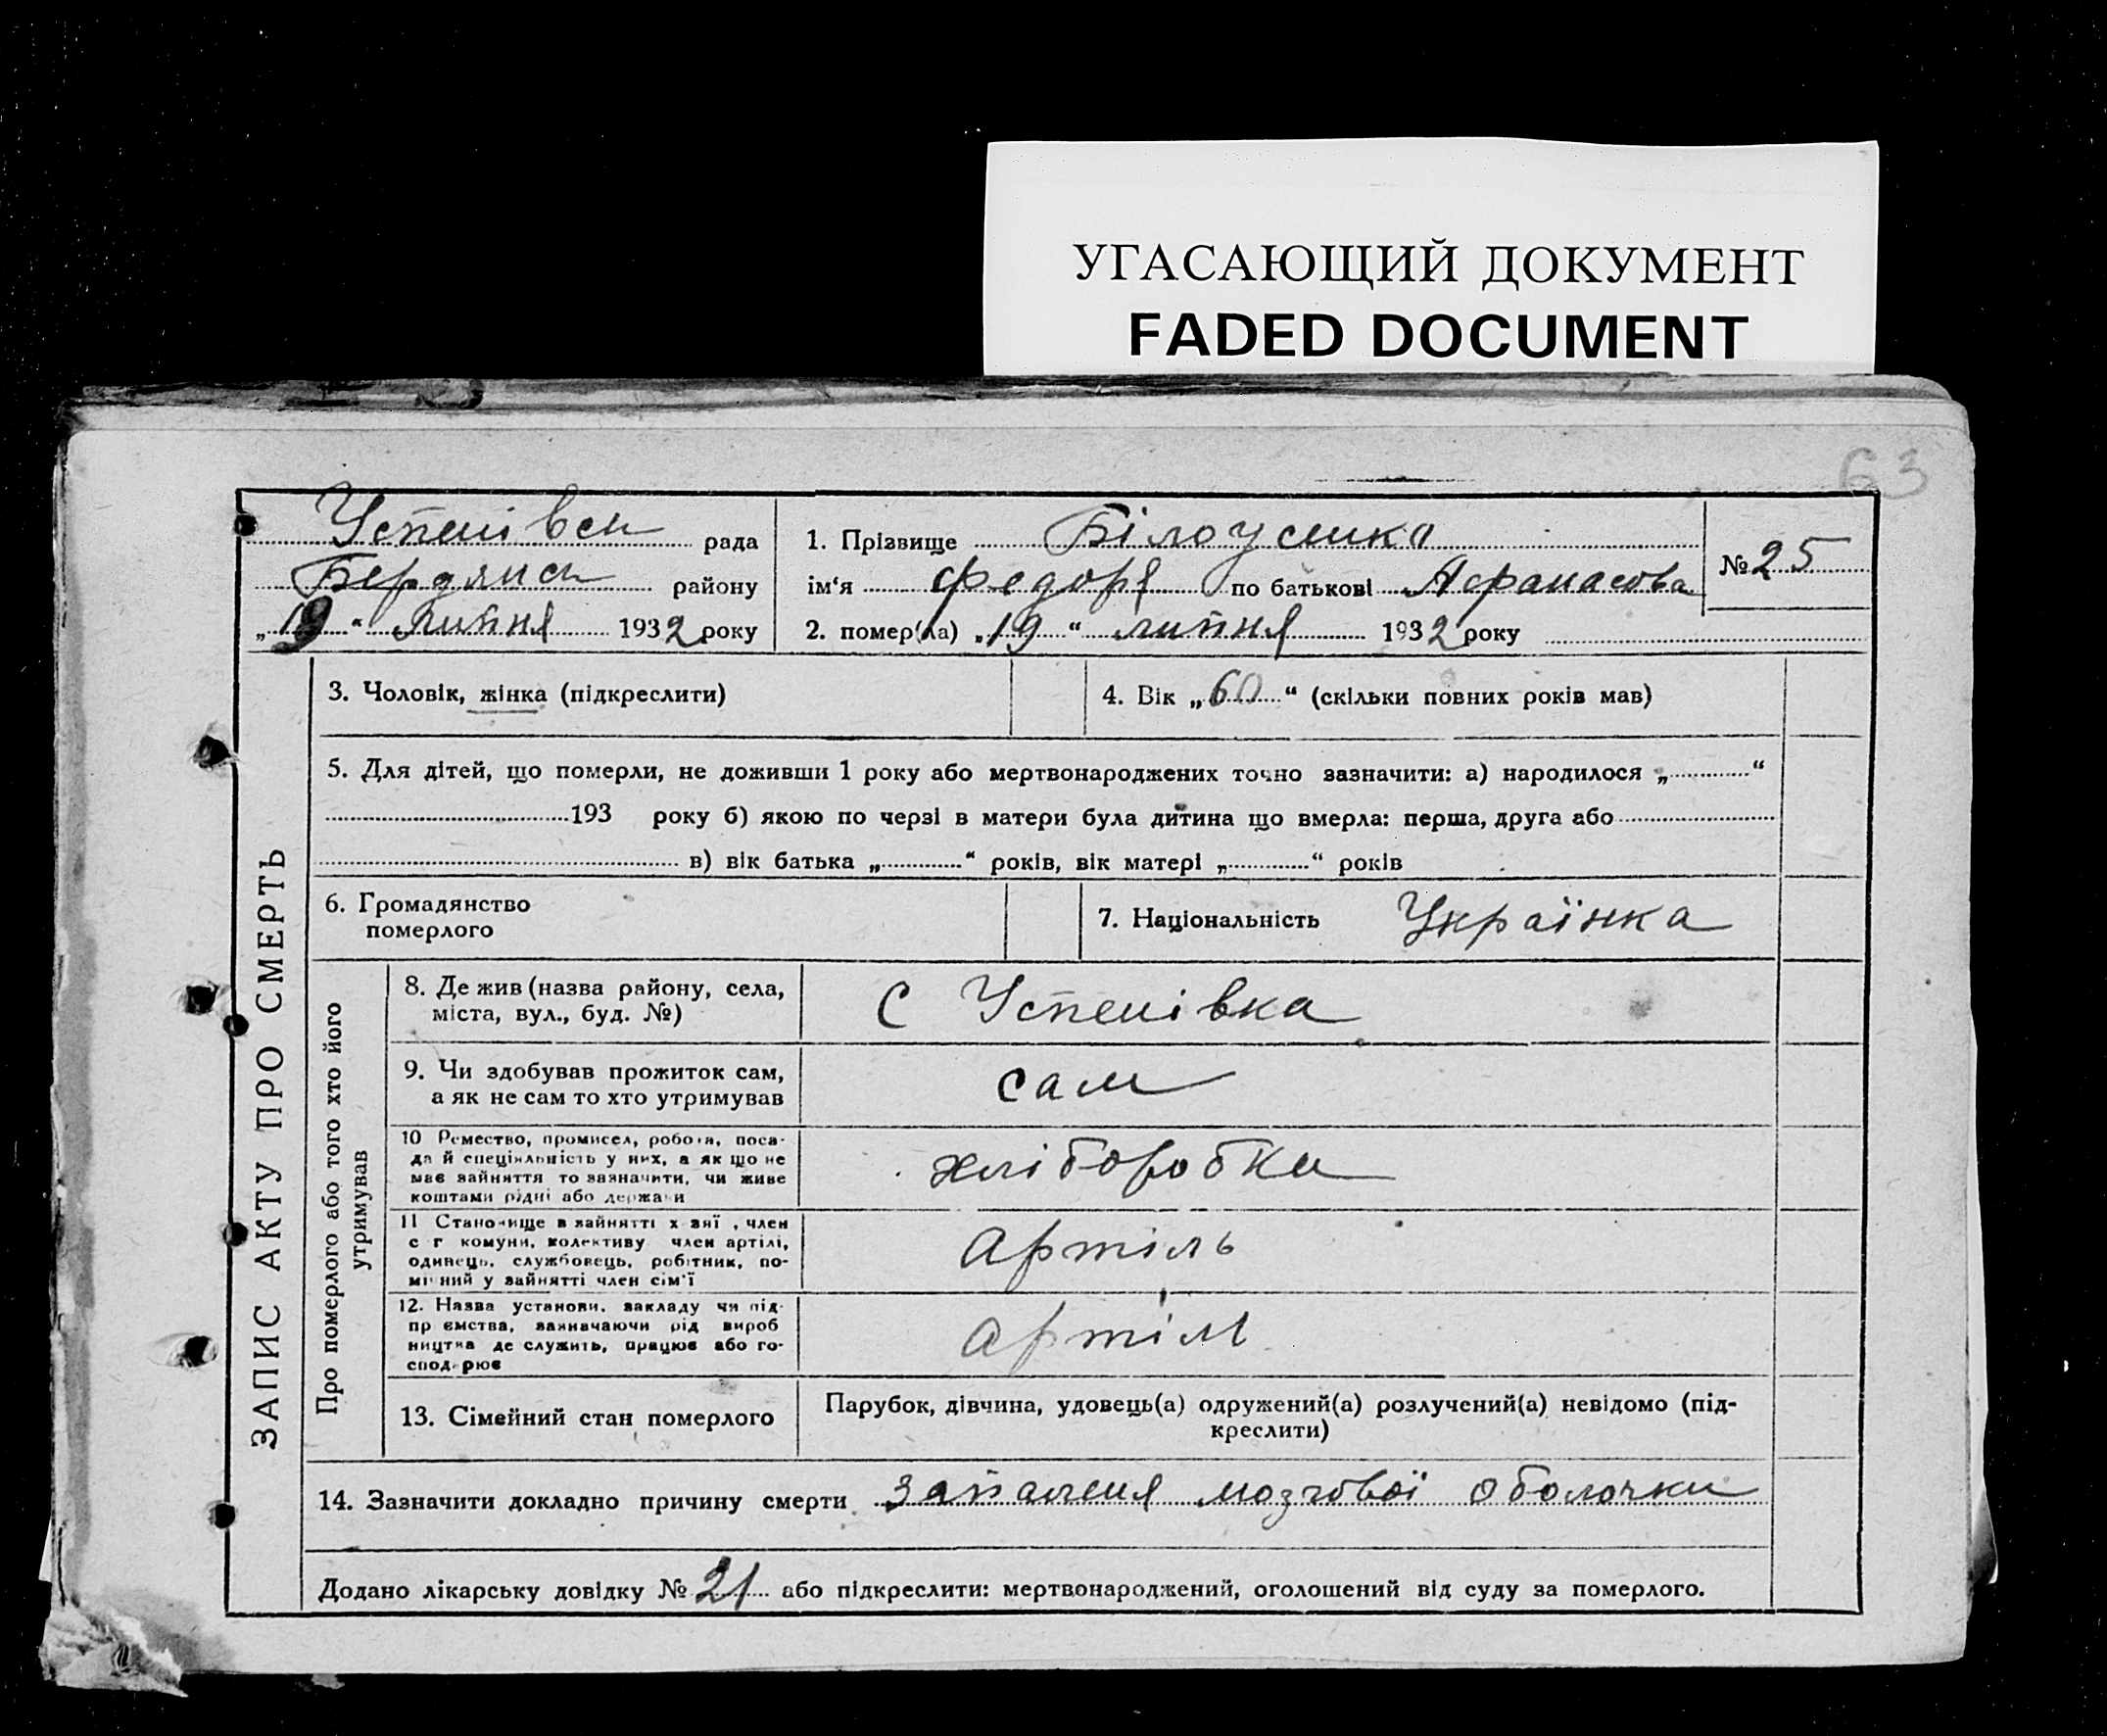 УГАСАЮЩИЙ ДОКУМЕНТ
FADED DOCUMENT
63
Успенівск рада
Бердянск району
„19“ липня 1932 року
1. Прізвище Білоусика
ім‘я Федоря по батькові Афанасова
2. помер(ла) „19“ липня 1932 року
№ 25
ЗАПИС АКТУ ПРО СМЕРТЬ
3. Чоловік, жінка (підкреслити)
4. Вік „60“ (скільки повних років мав)
5. Для дітей, що померли, не доживши 1 року або мертвонароджених точно зазначити: а) народилося „ “
193 року б) якою по черзі в матери була дитина що вмерла: перша, друга або
в) вік батька „ “ років, вік матері „ “ років
6. Громадянство
померлого
7. Національність Українка
Про померлого або того хто його
утримував
8. Де жив (назва району, села,
міста, вул., буд. №)
С Успенівка
9. Чи здобував прожиток сам,
а як не сам то хто утримував
сам
10 Ремество, промисел, робота, поса-
да й спеціяльність у них, а як що не
має зайняття то зазначити, чи живе
коштами рідні або держави
хліборобка
11 Становище в зайнятті х зяї , член
с г комуни, колективу член артілі,
одинець, службовець, робітник, по-
мічний у зайнятті член сім'ї
Артіль
12. Назва установи, закладу чи під-
пр ємства, зазначаючи рід вироб
ництва де служить, працює або го-
сподарює
Артіл
13. Сімейний стан померлого
Парубок, дівчина, удовець(а) одружений(а) розлучений(а) невідомо (під-
креслити)
14. Зазначити докладно причину смерти запаленя мозгової оболочки
Додано лікарську довідку № 21 або підкреслити: мертвонароджений, оголошений від суду за померлого.